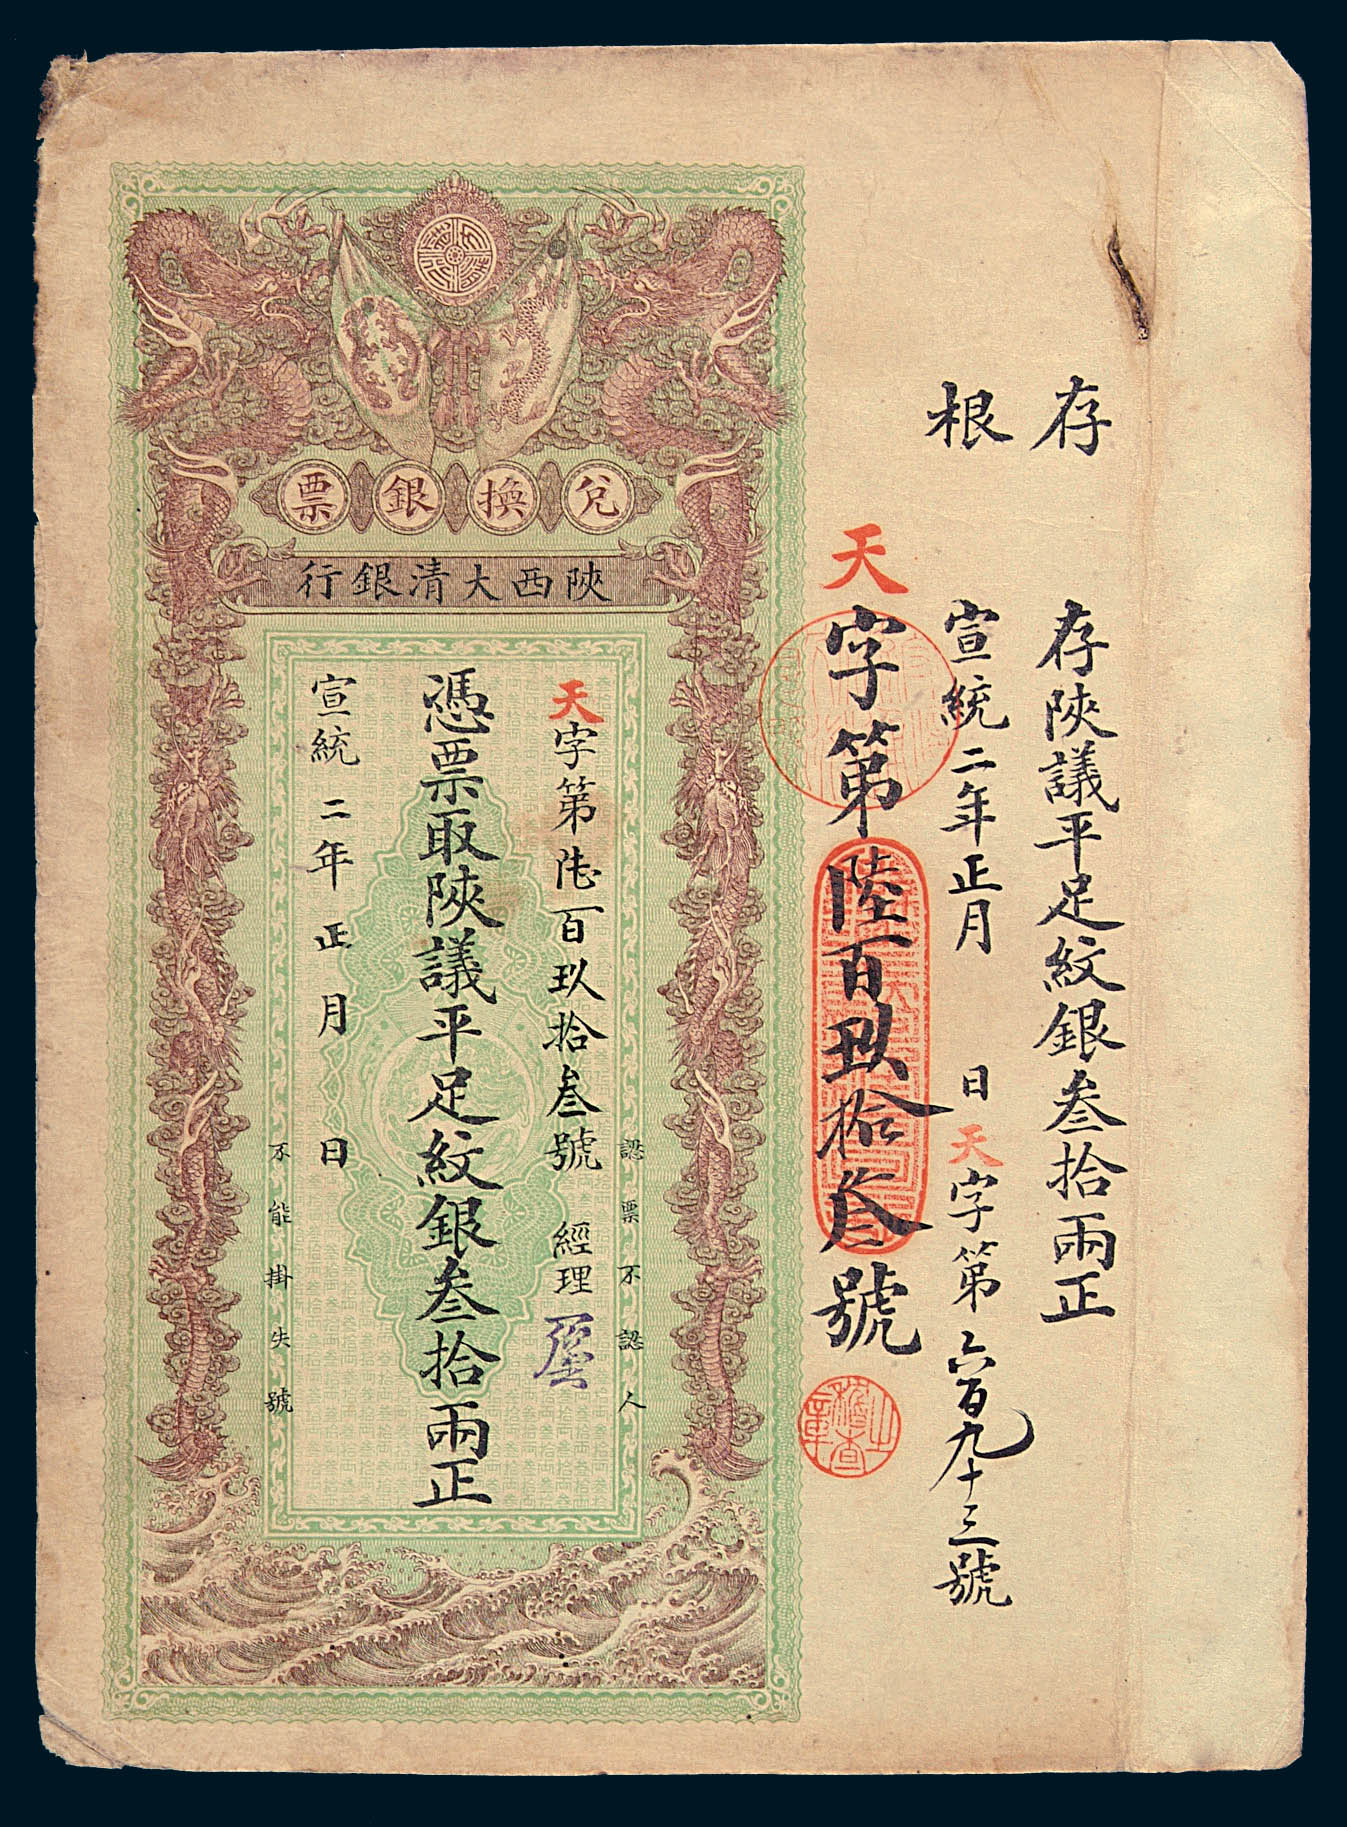 存根
存陝議平足紋銀叁拾兩正
宣統二年正月 日天字第六百九十三號
天字第陸百玖拾叁號
稽查之章
兌換銀票
陝西大清銀行
認票不認人
天字第陸百玖拾叁號 經理
憑票取陝議平足紋銀叁拾兩正
宣統二年正月 日
不能掛失號